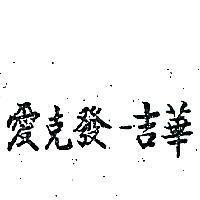 愛克發-吉華